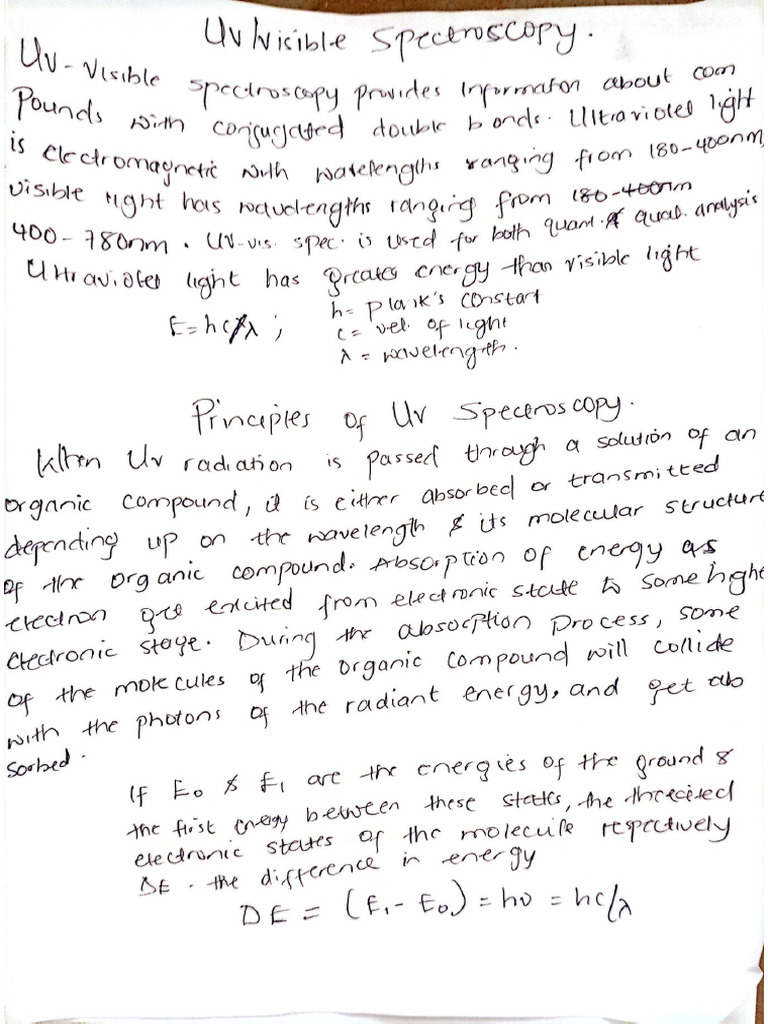 UV/visible Spectroscopy.
UV-Visible spectroscopy provides information about com
pounds with conjugated double bonds. Ultraviolet light
is electromagnetic with wavelengths ranging from 180-400nm,
visible light has wavelengths ranging from 180-400nm
400-780nm. UV-vis. spec. is used for both quant. & qual. analysis
Ultraviolet light has greater energy than visible light
E=hc/λ; h= Plank's constant
c= vel. of light
λ = wavelength.
Principles of UV Spectroscopy.
When UV radiation is passed through a solution of an
organic compound, it is either absorbed or transmitted
depending up on the wavelength & its molecular structure
of the organic compound. Absorption of energy as
electron are excited from electronic state to some highe
electronic stage. During the absorption process, some
of the molecules of the organic compound will collide
with the photons of the radiant energy, and get ab
sorbed.
If E₀ & E₁ are the energies of the ground &
the first energy between these states, the the excited
electronic states of the molecule repectively
ΔE. the difference in energy
ΔE = (E₁-E₀) = hυ = hc/λ